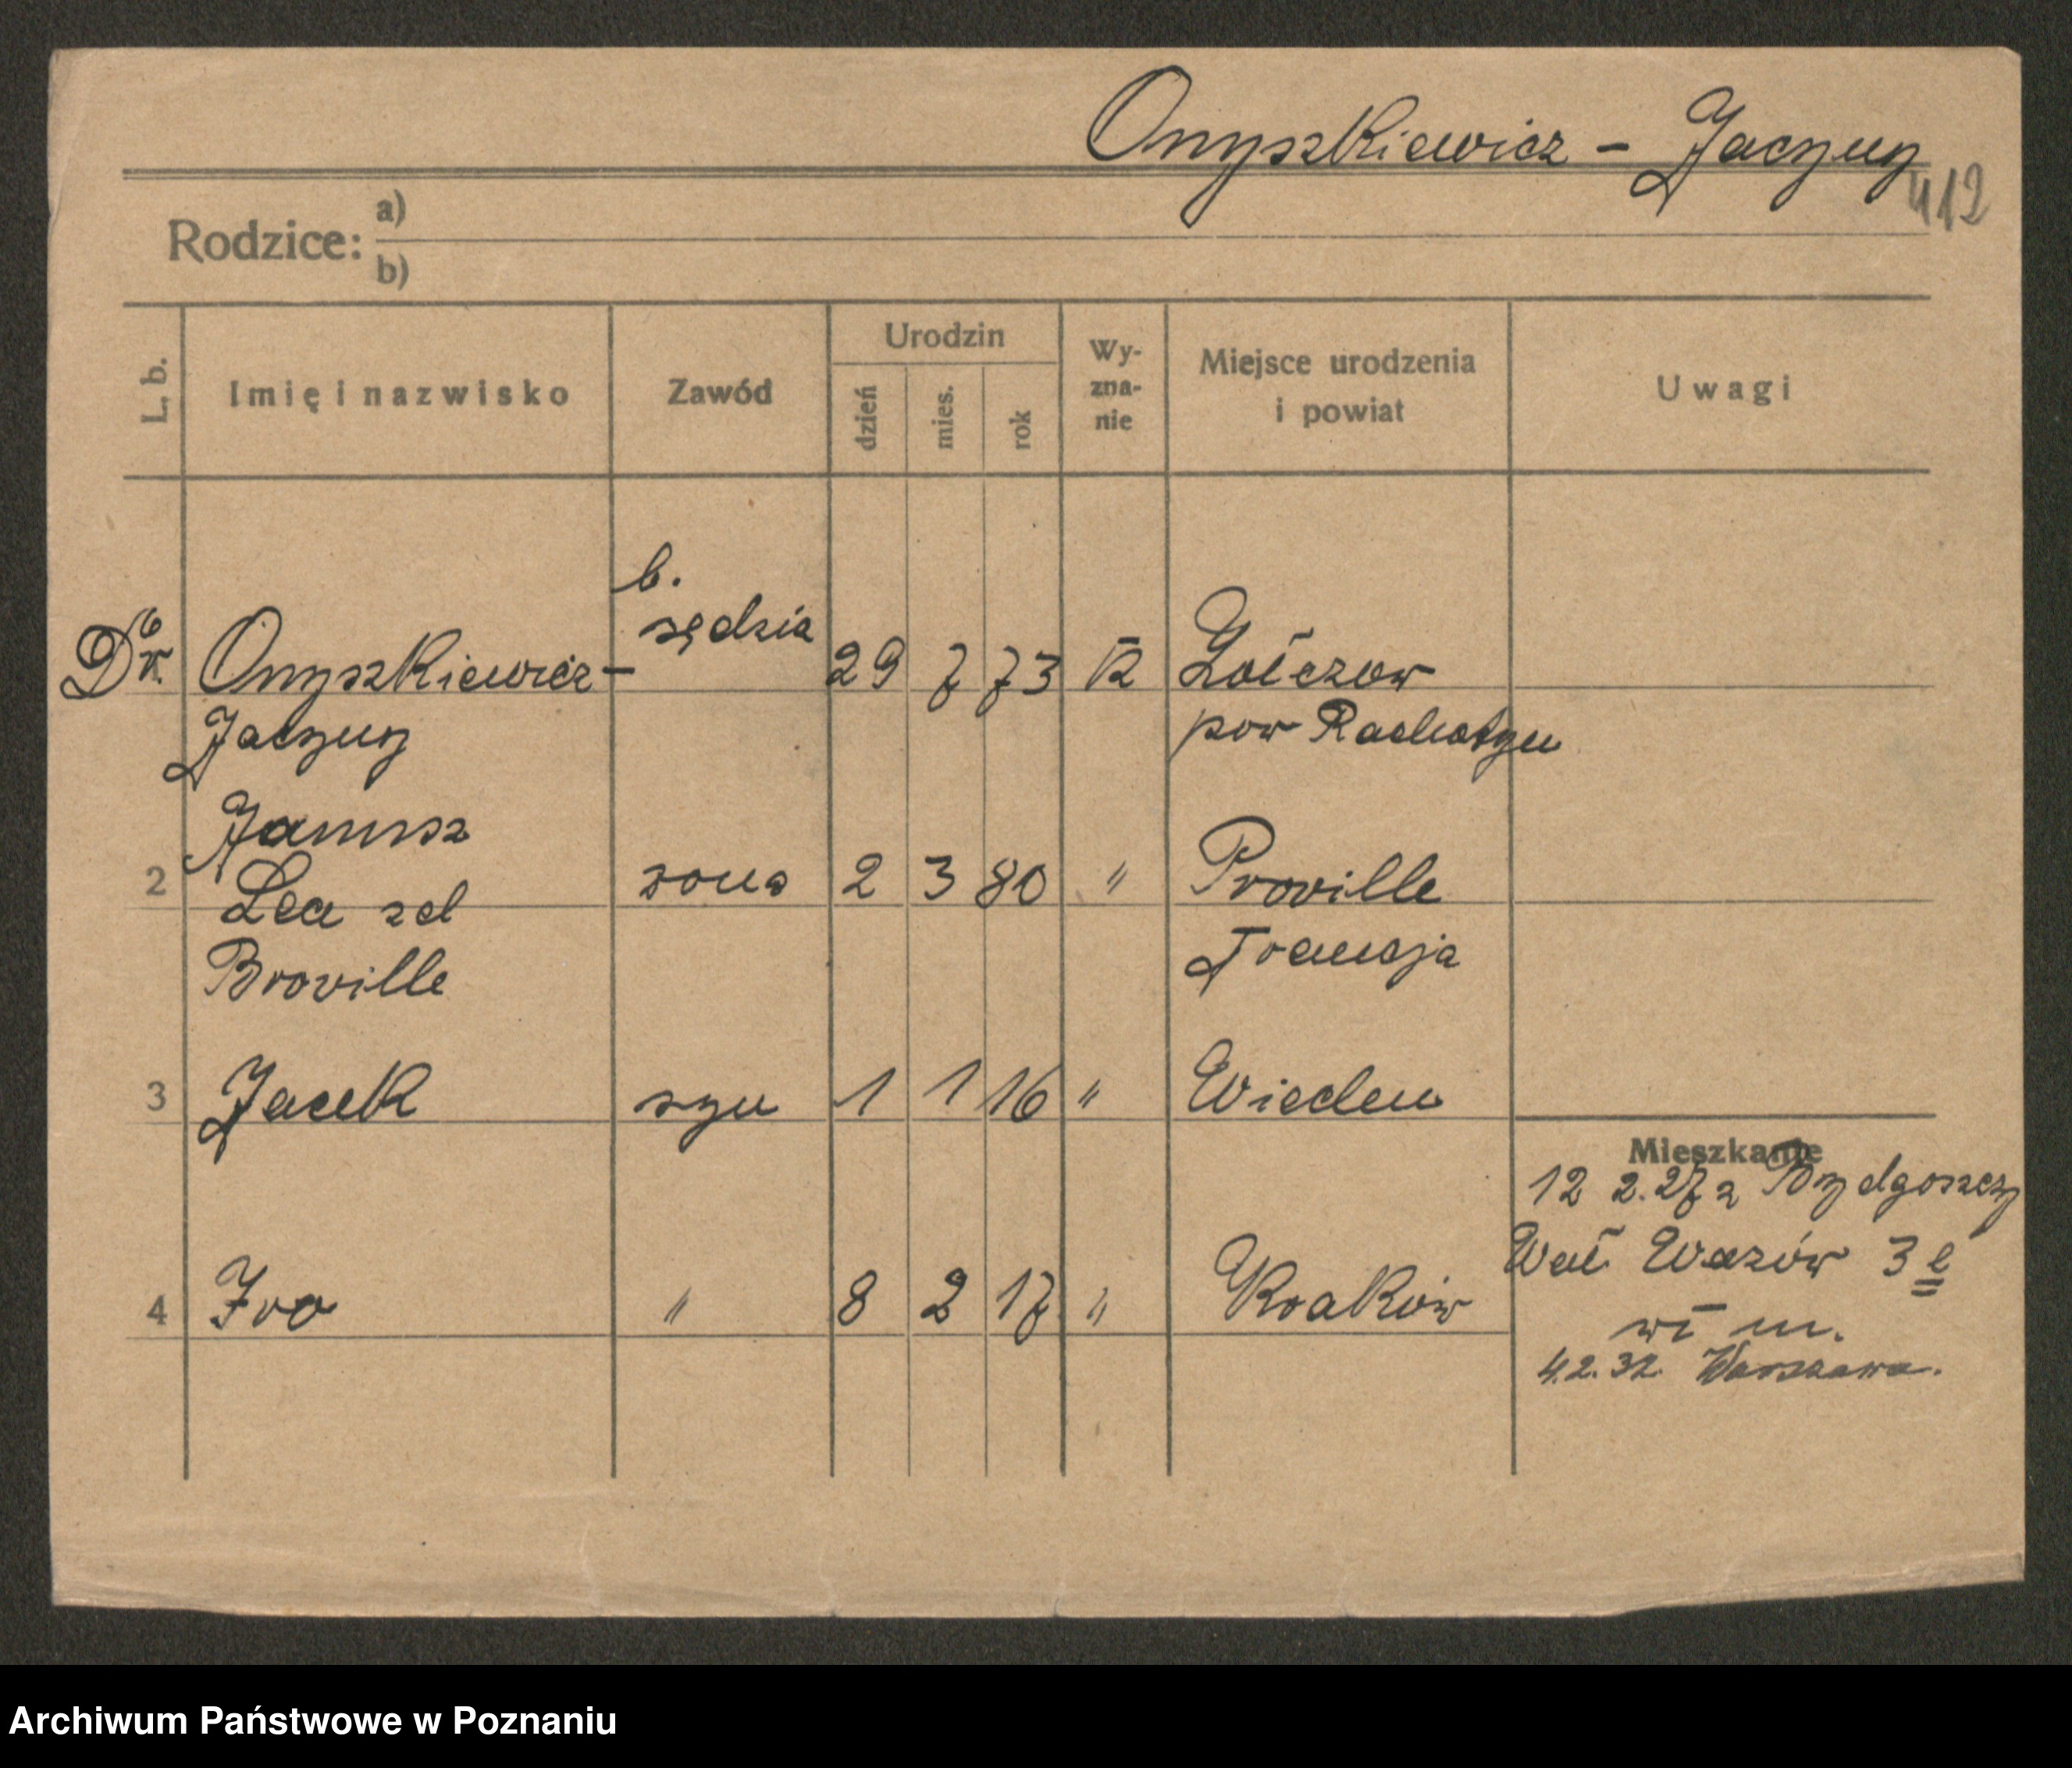 Onyszkiewicz - Jaczyny
412
Rodzice: a)
b)
L. b.
Imię i nazwisko
Zawód
Urodzin
dzień
mies.
rok
Wy-
zna-
nie
Miejsce urodzenia
i powiat
Uwagi
b.
Dr. Onyszkiewicz- sędzia 29 7 73 R
Jaczyny pow
Janusz
2 Lea zd żona 2 3 80 " Proville
Broville Francja
3 Jacek syn 1 1 16 " Wieden
Mieszkanie
12 2.27 z Bydgoszczy
Wał Wazów 3 e
4 Ivo " 8 2 17 " Kraków
wł m.
4.2.32. Warszawa.
Archiwum Państwowe w Poznaniu